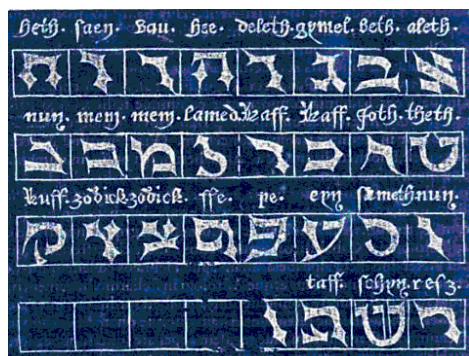 heth. saen. Vau. hee. deleth. gymel. beth. aleth.
א ב ג ד ה ו ז ח
nun. mem. mem. lamed. kaff. kaff. Joth. theth.
ט י כ ך ל מ ם נ
kuff. zodick. zodick. ffe. pe. eyn sameth. nun.
ן ס ע פ ף צ ץ ק
taff. schyn. resz.
ר ש ת